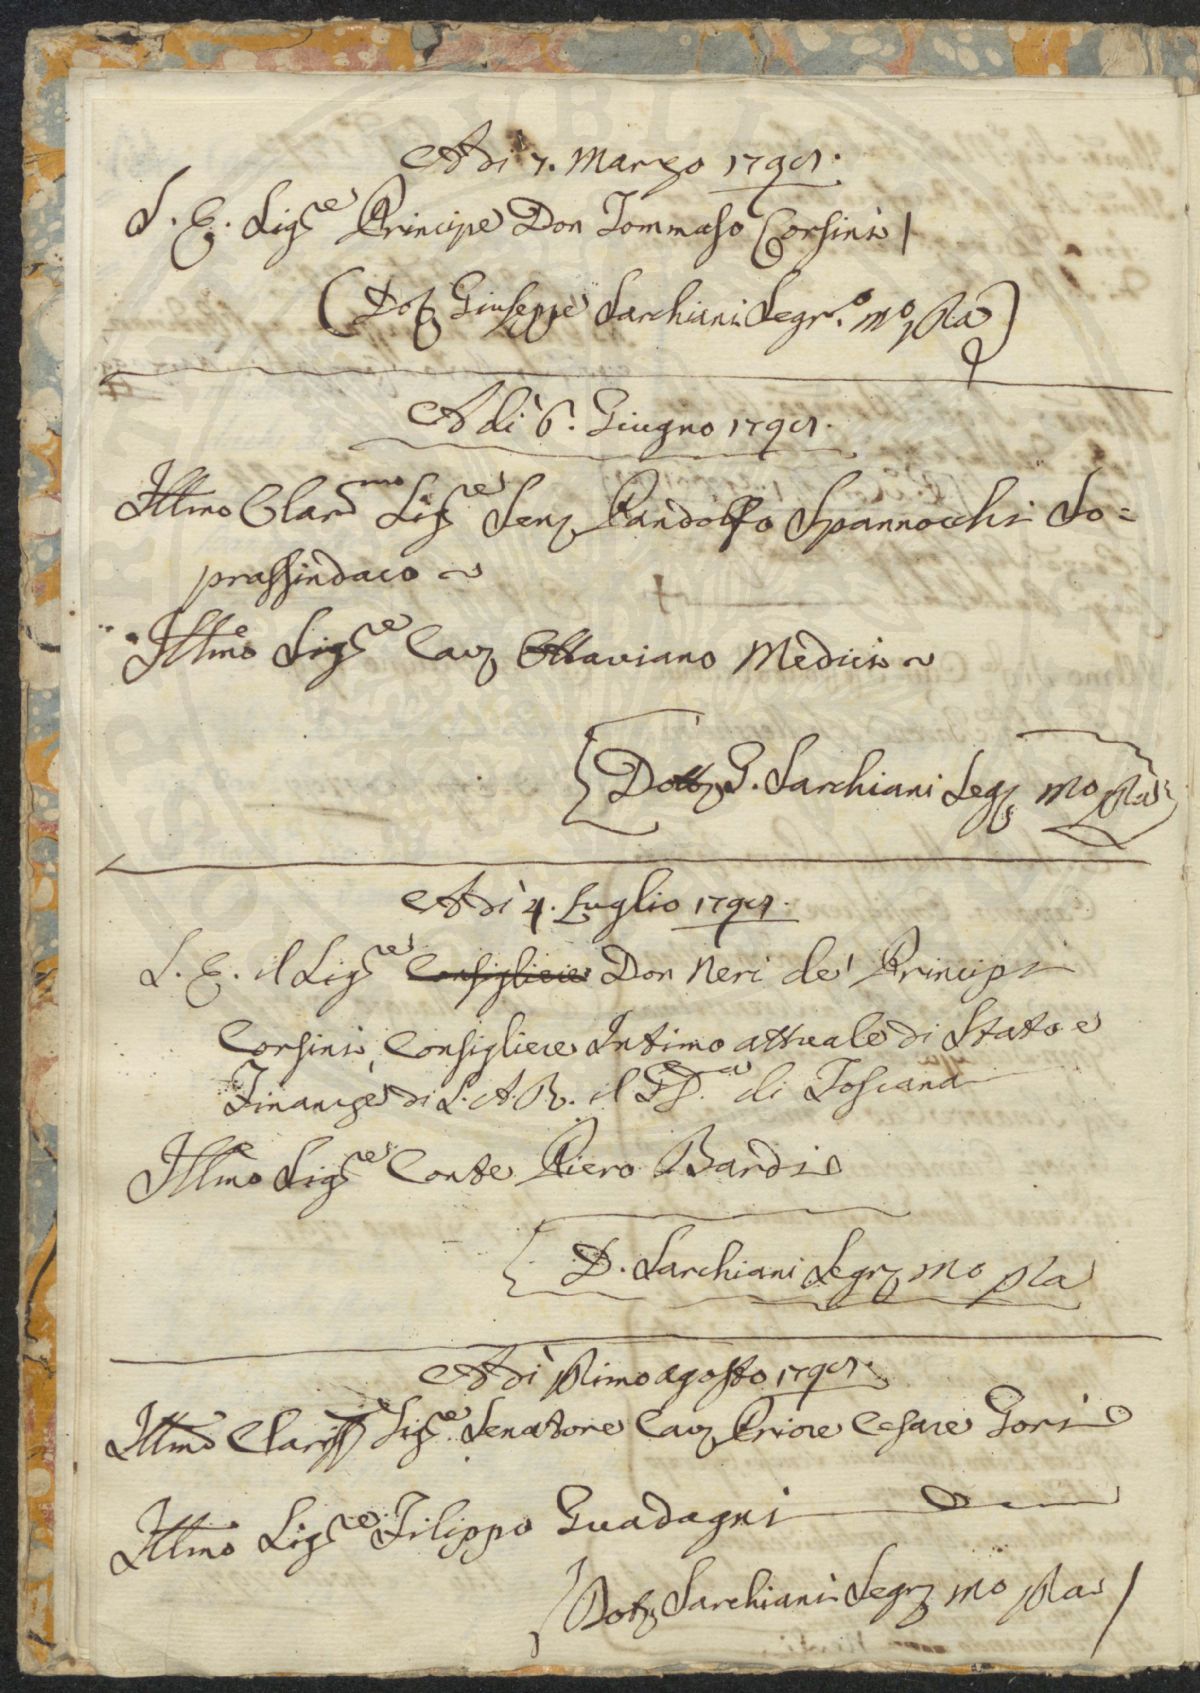 Adì 7. Marzo 1791.
S. E. Sig.re Principe Don Tommaso Corsini
(Dot. Giuseppe Sarchiani Segr.o mo pra)
Adì 6. Giugno 1791.
Illmo Clarmo Sig.re Sen. Pandolfo Spannocchi So=
prassindaco
Illmo Sig.re Cav. Ottaviano Medici
Dott. G. Sarchiani Seg. mo pra
Adì 4. Luglio 1791.
S. E. il Sig.re Consigliere Don Neri de' Principi
Corsini, Consigliere Intimo attuale di Stato e
Finanze di S. A. R. il GD.a di Toscana
Illmo Sig.re Conte Piero Bardi
D. Sarchiani Segr. mo pra
Adì primo agosto 1791.
Illmo Clariss. Sig.re Senatore Cav. Priore Cesare Gori
Illmo Sig.re Filippo Guadagni
Dot. Sarchiani Segr. mo pra